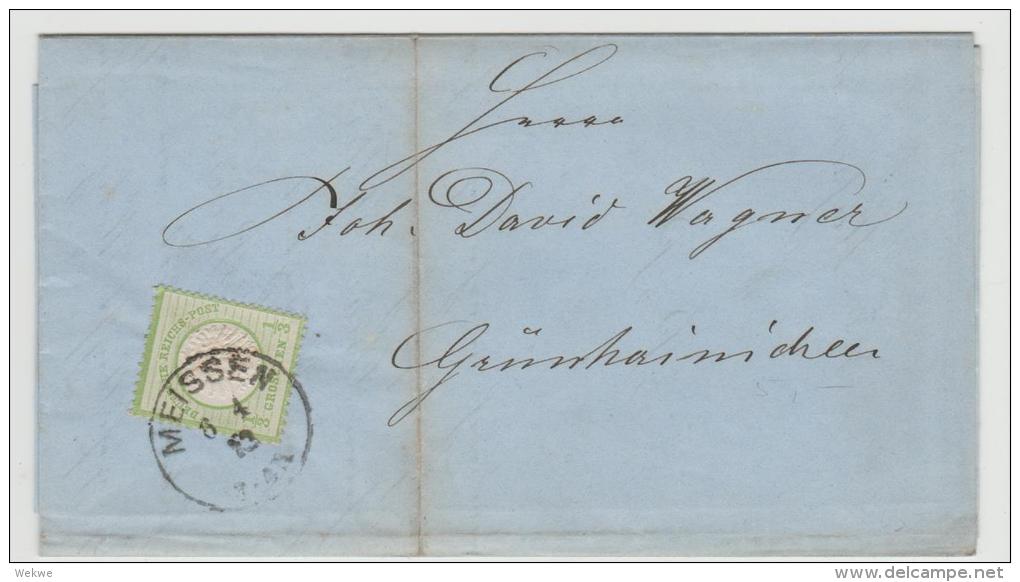 Herrn
Joh. David Wagner
Grünhainichen
DEUTSCHE REICHS-POST
1/3
GROSCHEN 1/3
MEISSEN
8 4
73
Wekwe
delcampe.net